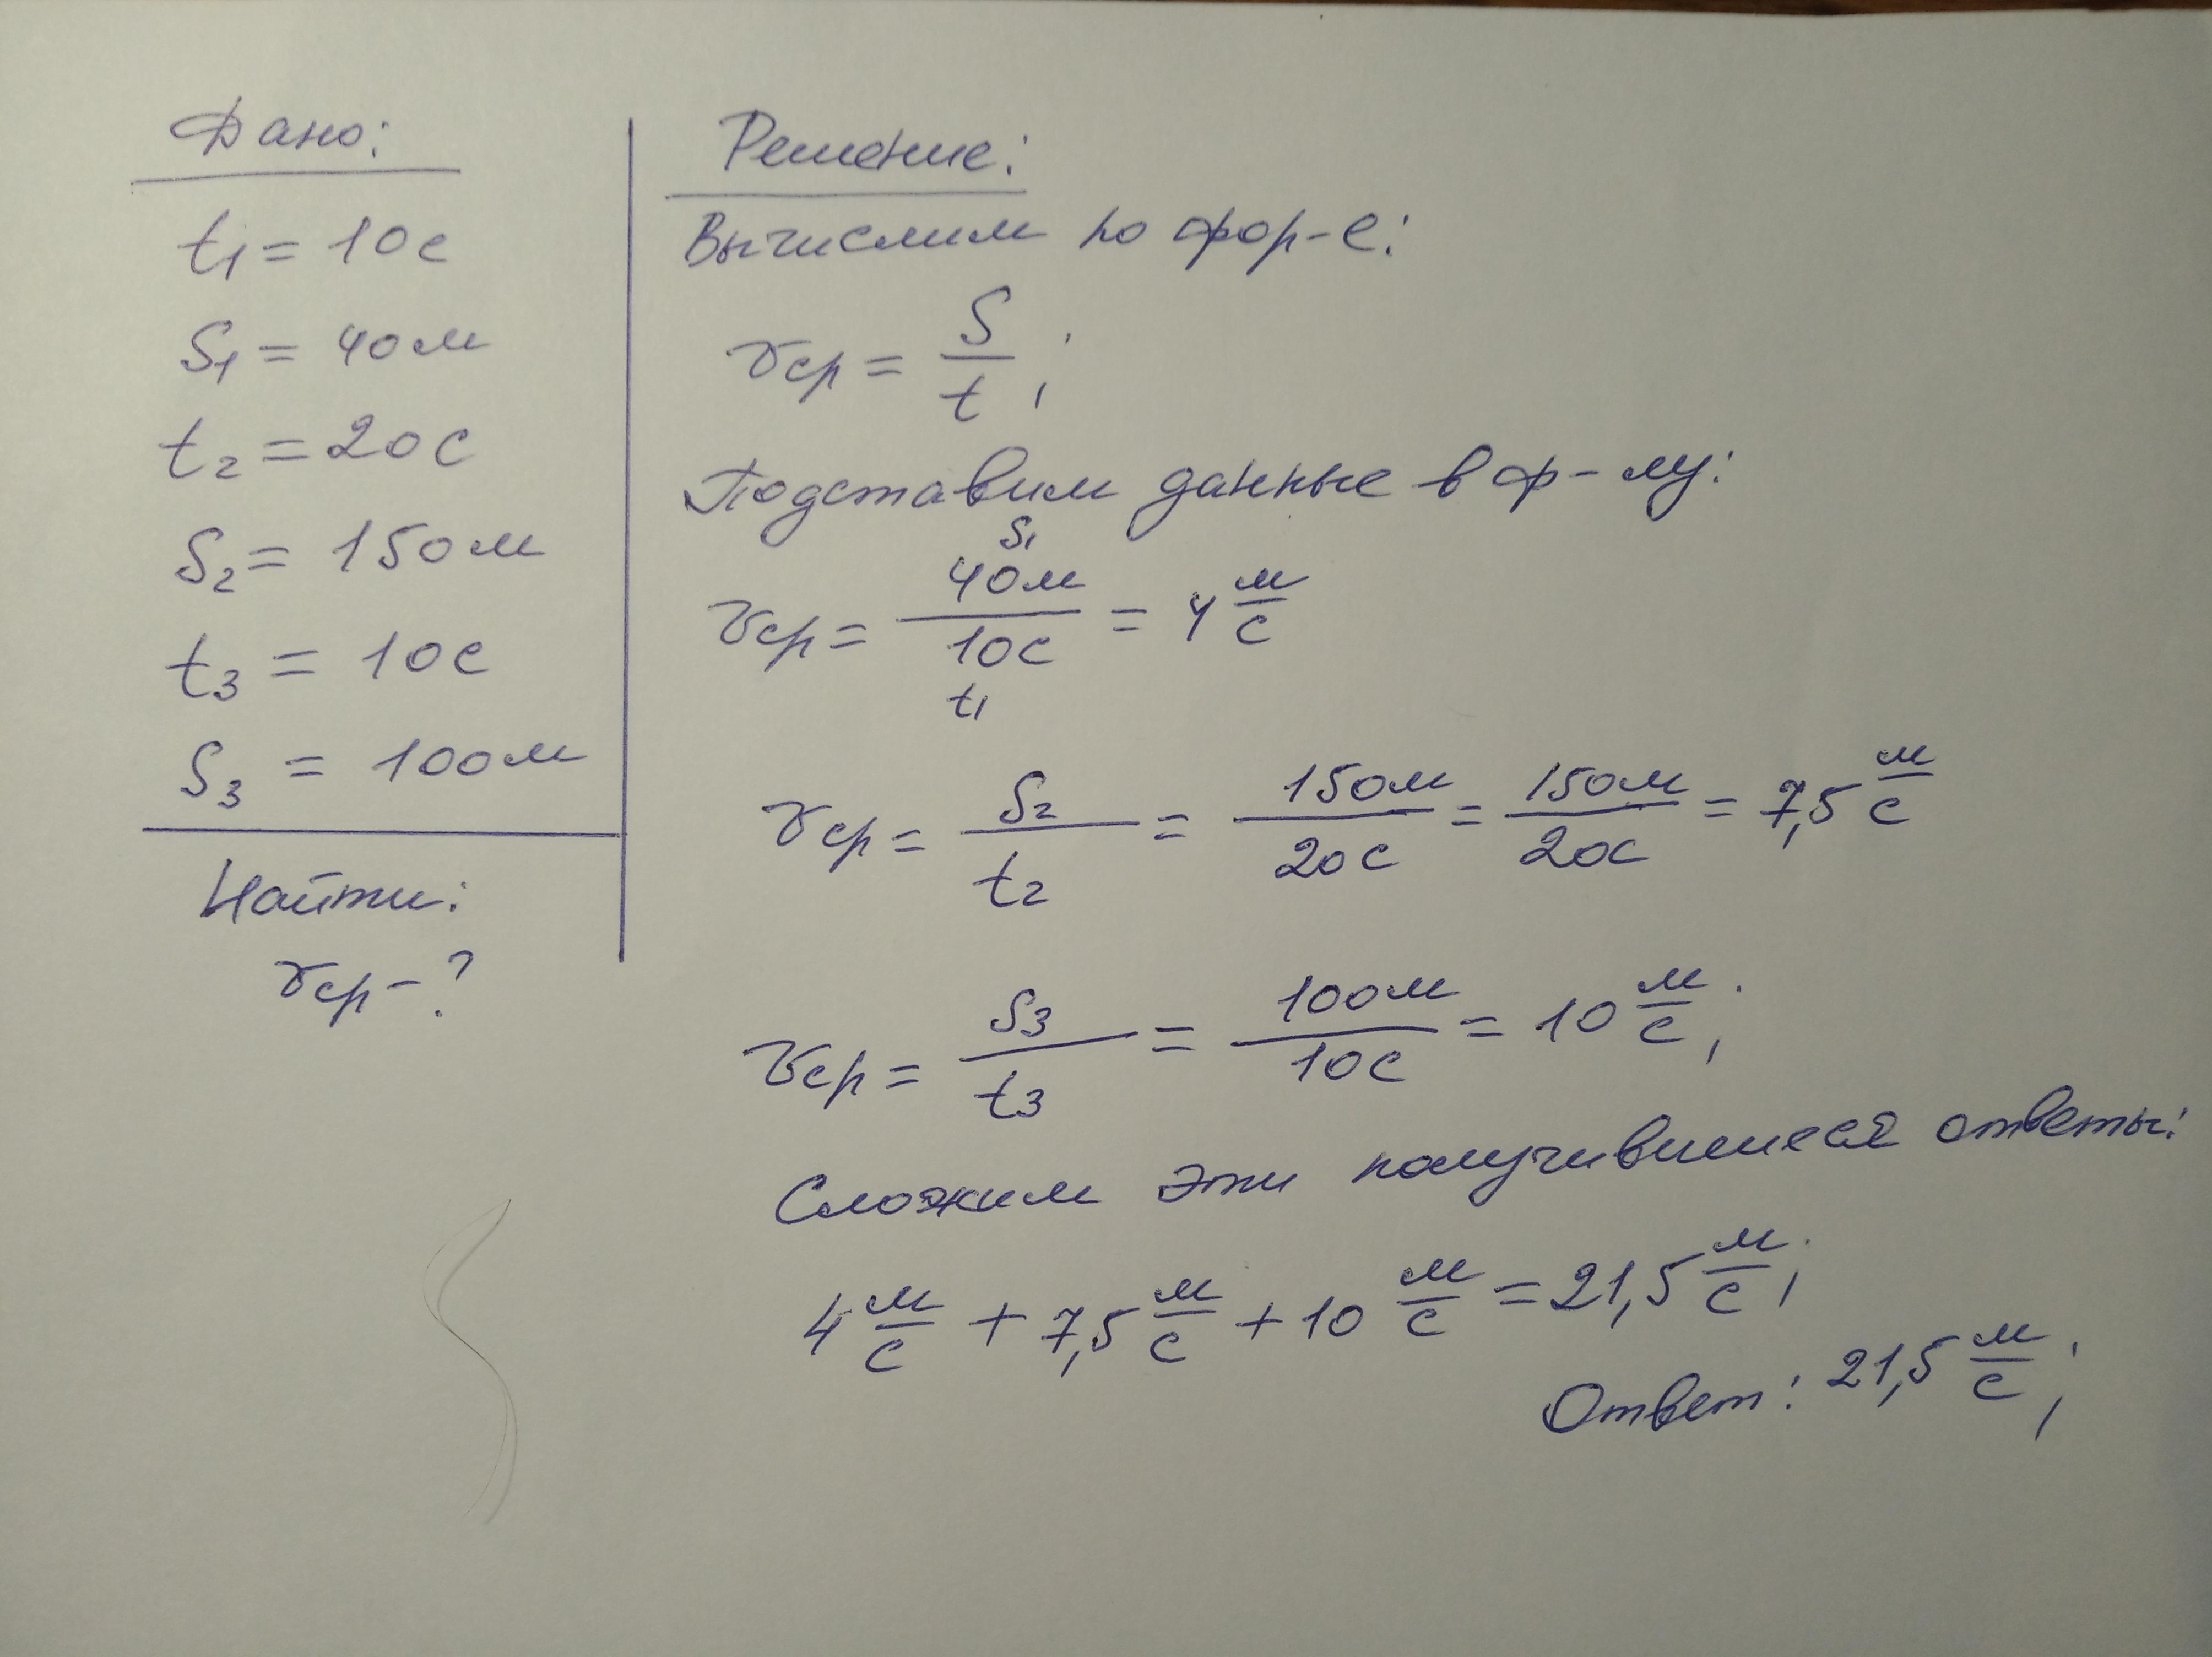 Дано:
t₁ = 10с
S₁ = 40м
t₂ = 20с
S₂ = 150м
t₃ = 10с
S₃ = 100м
Найти:
υср - ?
Решение:
Вычислим по фор-е:
υср = S/t;
Подставим данные в ф-лу:
S₁
υср = 40м/10с = 4 м/с
t₁
υср = S₂/t₂ = 150м/20с = 150м/20с = 7,5 м/с
υср = S₃/t₃ = 100м/10с = 10 м/с;
Сложим эти получившиеся ответы:
4 м/с + 7,5 м/с + 10 м/с = 21,5 м/с;
Ответ: 21,5 м/с;